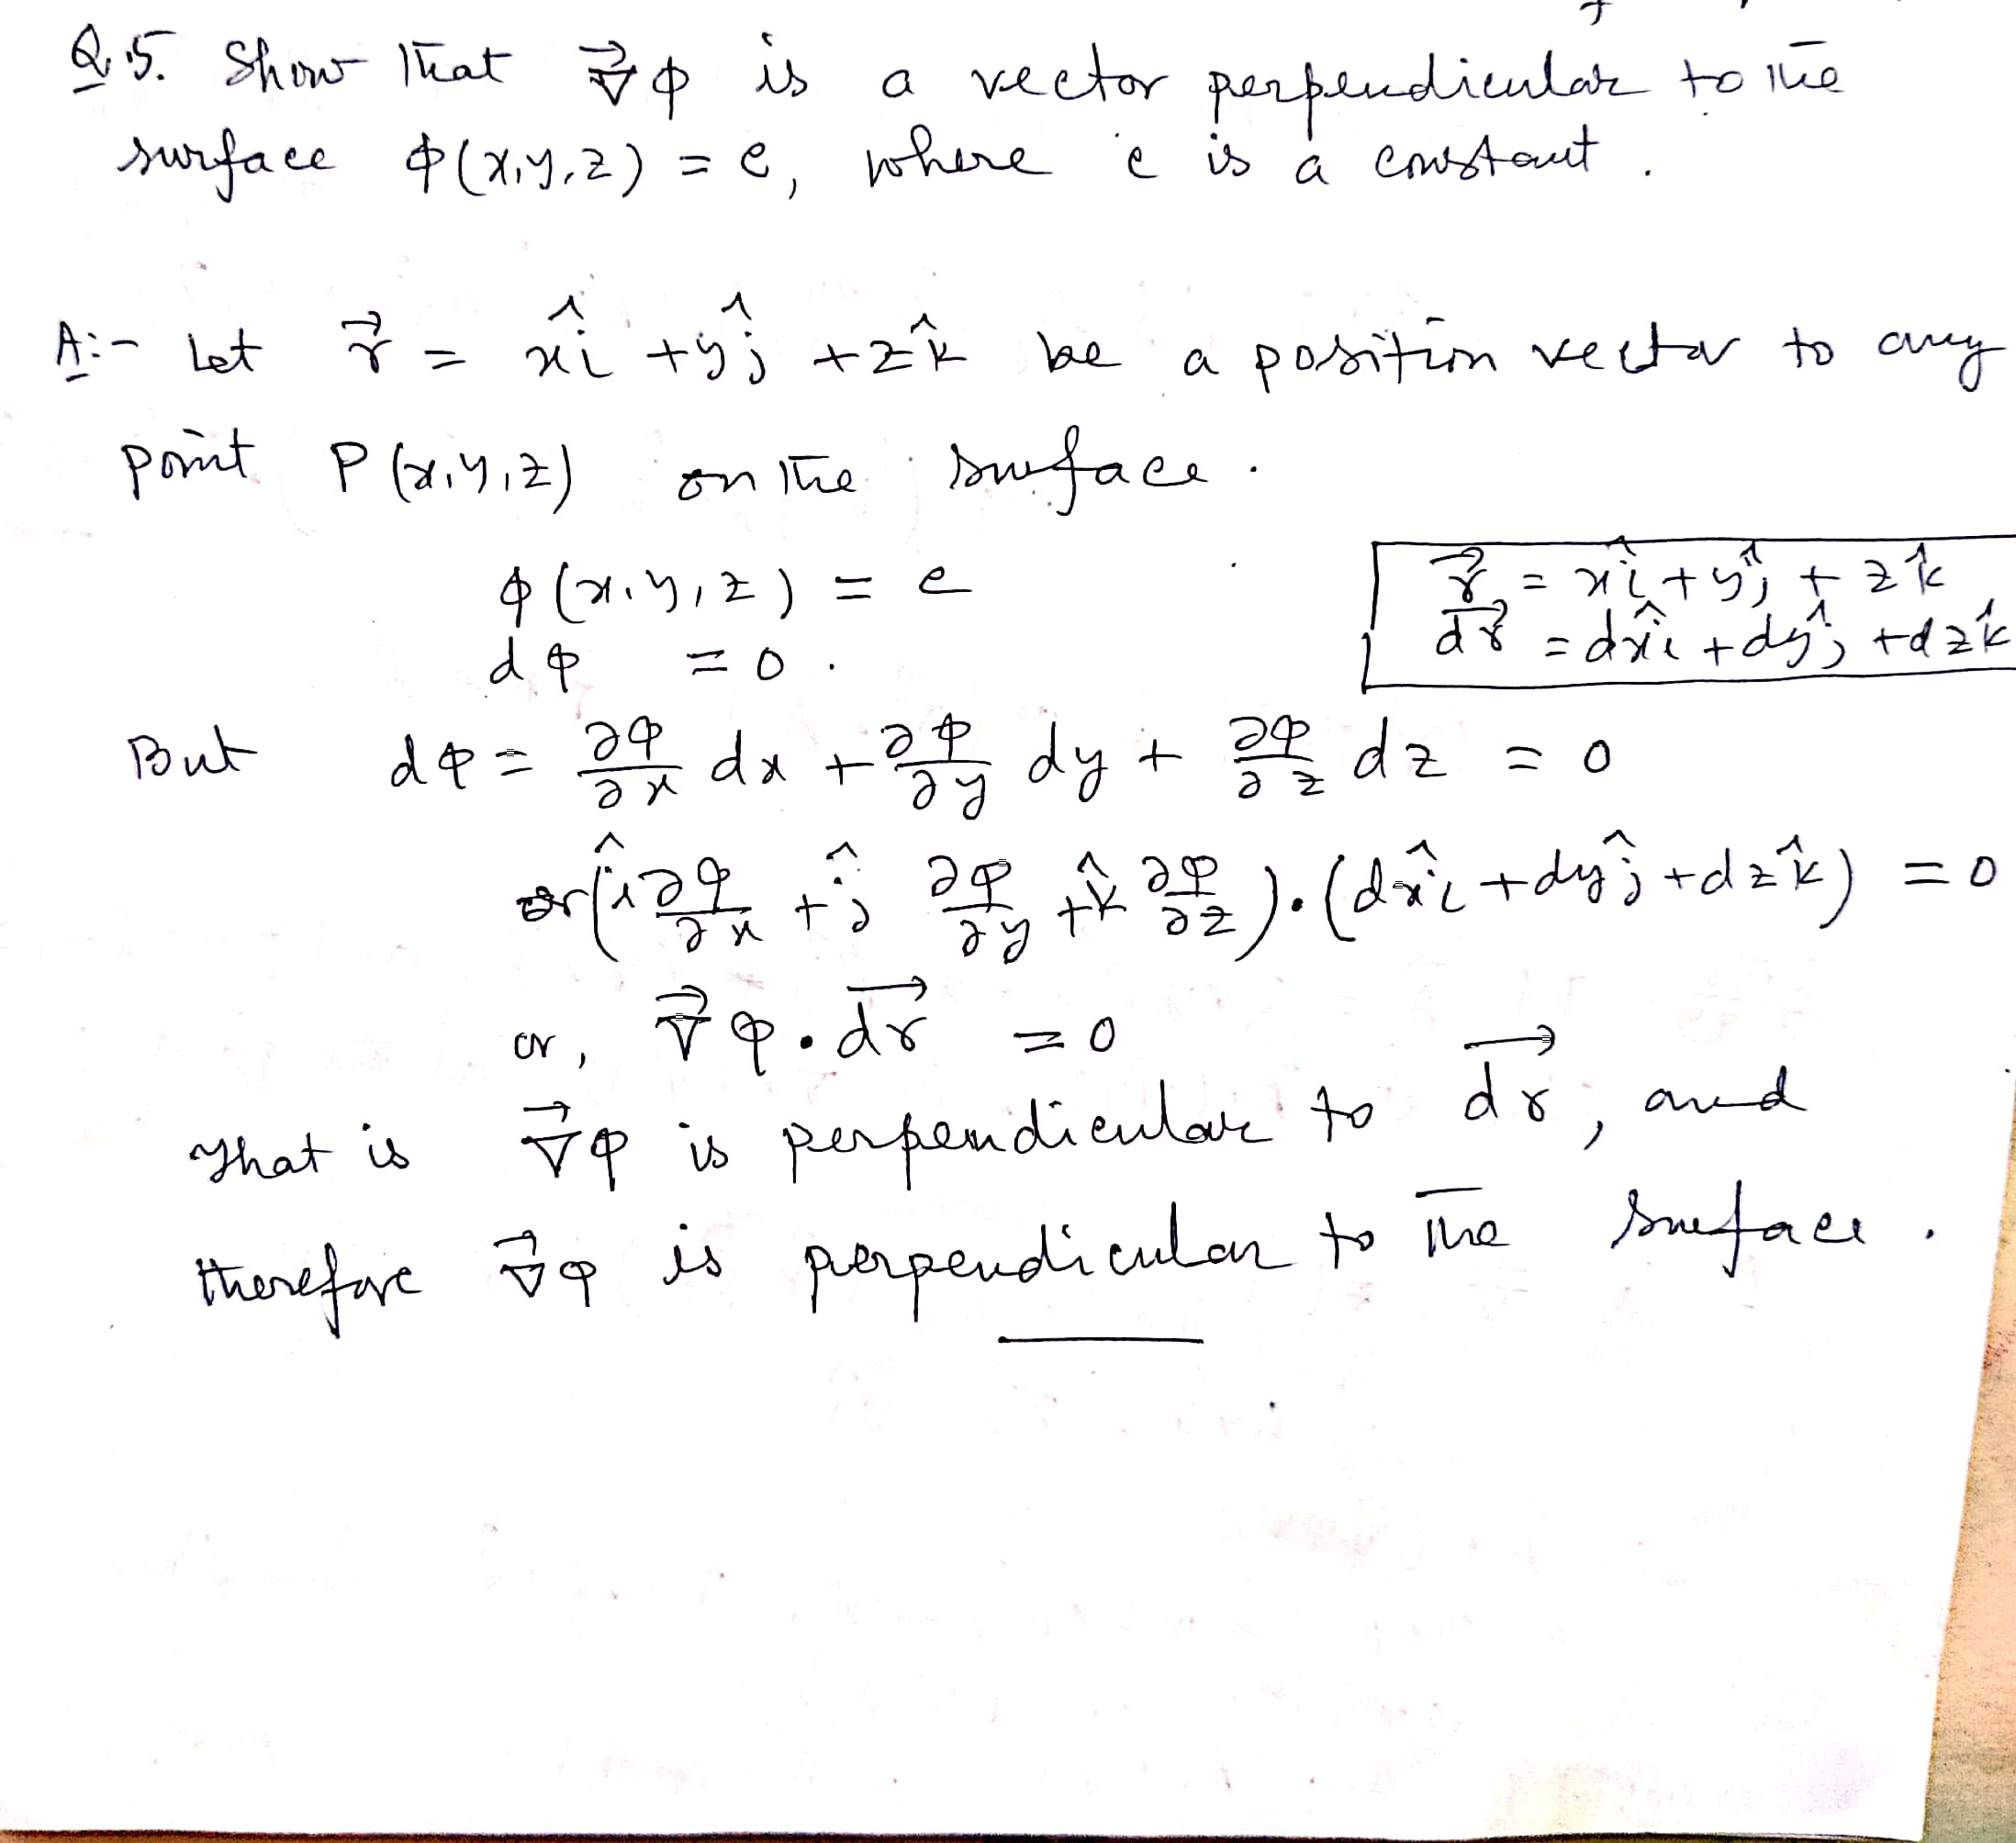 Q.5. Show that ∇⃗φ is a vector perpendicular to the
surface φ(x,y,z) = c, where c is a constant.
A:- Let r⃗ = xî + yĵ + zk̂ be a position vector to any
point P(x,y,z) on the surface.
φ(x,y,z) = c
dφ = 0.
r⃗ = xî + yĵ + zk̂
dr⃗ = dxî + dyĵ + dzk̂
But dφ = ∂φ/∂x dx + ∂φ/∂y dy + ∂φ/∂z dz = 0
or (î ∂φ/∂x + ĵ ∂φ/∂y + k̂ ∂φ/∂z)·(dxî + dyĵ + dzk̂) = 0
or, ∇⃗φ·dr⃗ = 0
That is ∇⃗φ is perpendicular to dr⃗, and
therefore ∇⃗φ is perpendicular to the surface.